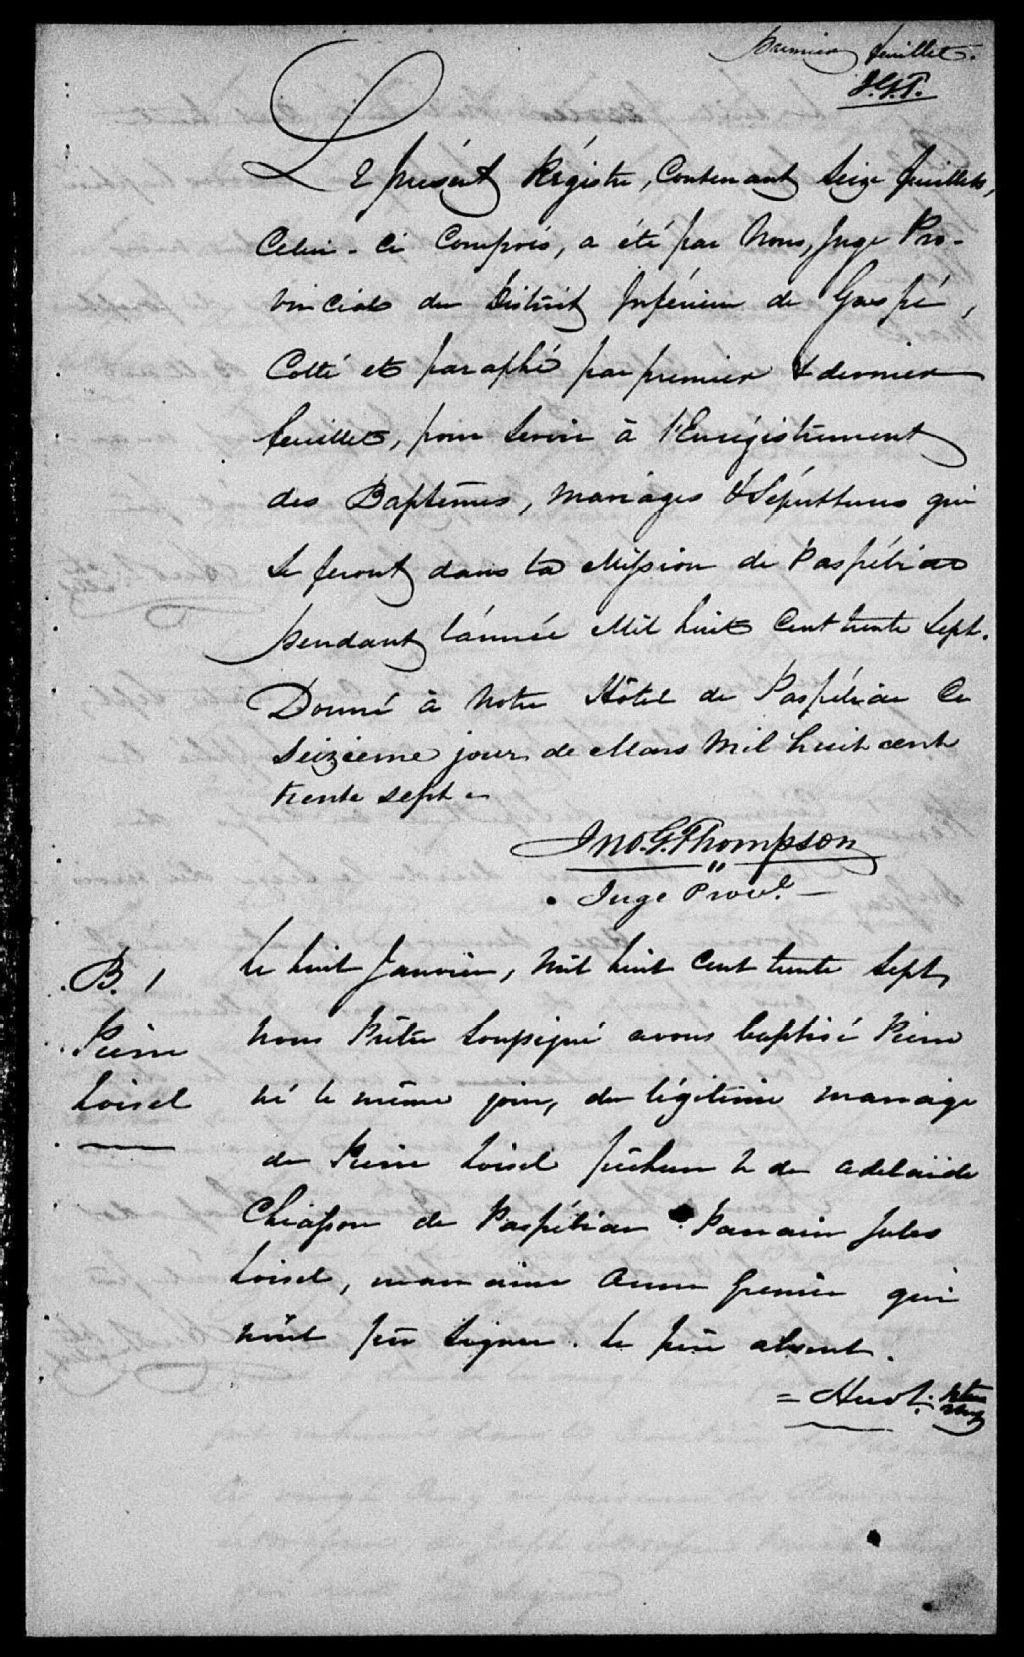 premier feuillet.
J.G.T.
Le présent Régistre, Contenant Seize feuillets,
Celui-Ci Compris, a été par Nous, Juge Pro-
vincial du District Inférieur de Gaspé,
Cotté et paraphé par premier & dernier
feuillet, pour Servir à l'Enrégistrement
des Baptêmes, Mariages & Sépultures qui
Se feront dans la Mission de Paspébiac
pendant l'année Mil huit Cent trente Sept.
Donné à Notre Hôtel de Paspébiac Ce
Seizième jour de Mars Mil huit cent
trente sept.
Jno. G. Thompson
Juge Provl.
B. 1
Pierre
Loisel
Le huit Janvier, Mil huit Cent trente Sept,
Nous Prêtre Soussigné avons baptisé Pierre
né le même jour, du légitime mariage
de Pierre Loisel pêcheur & de Adelaïde
Chiasson de Paspébiac. Parrain Jules
Loisel, marraine Anne Grenier qui
n'ont pu Signer. Le père absent.
= Huot. ptre